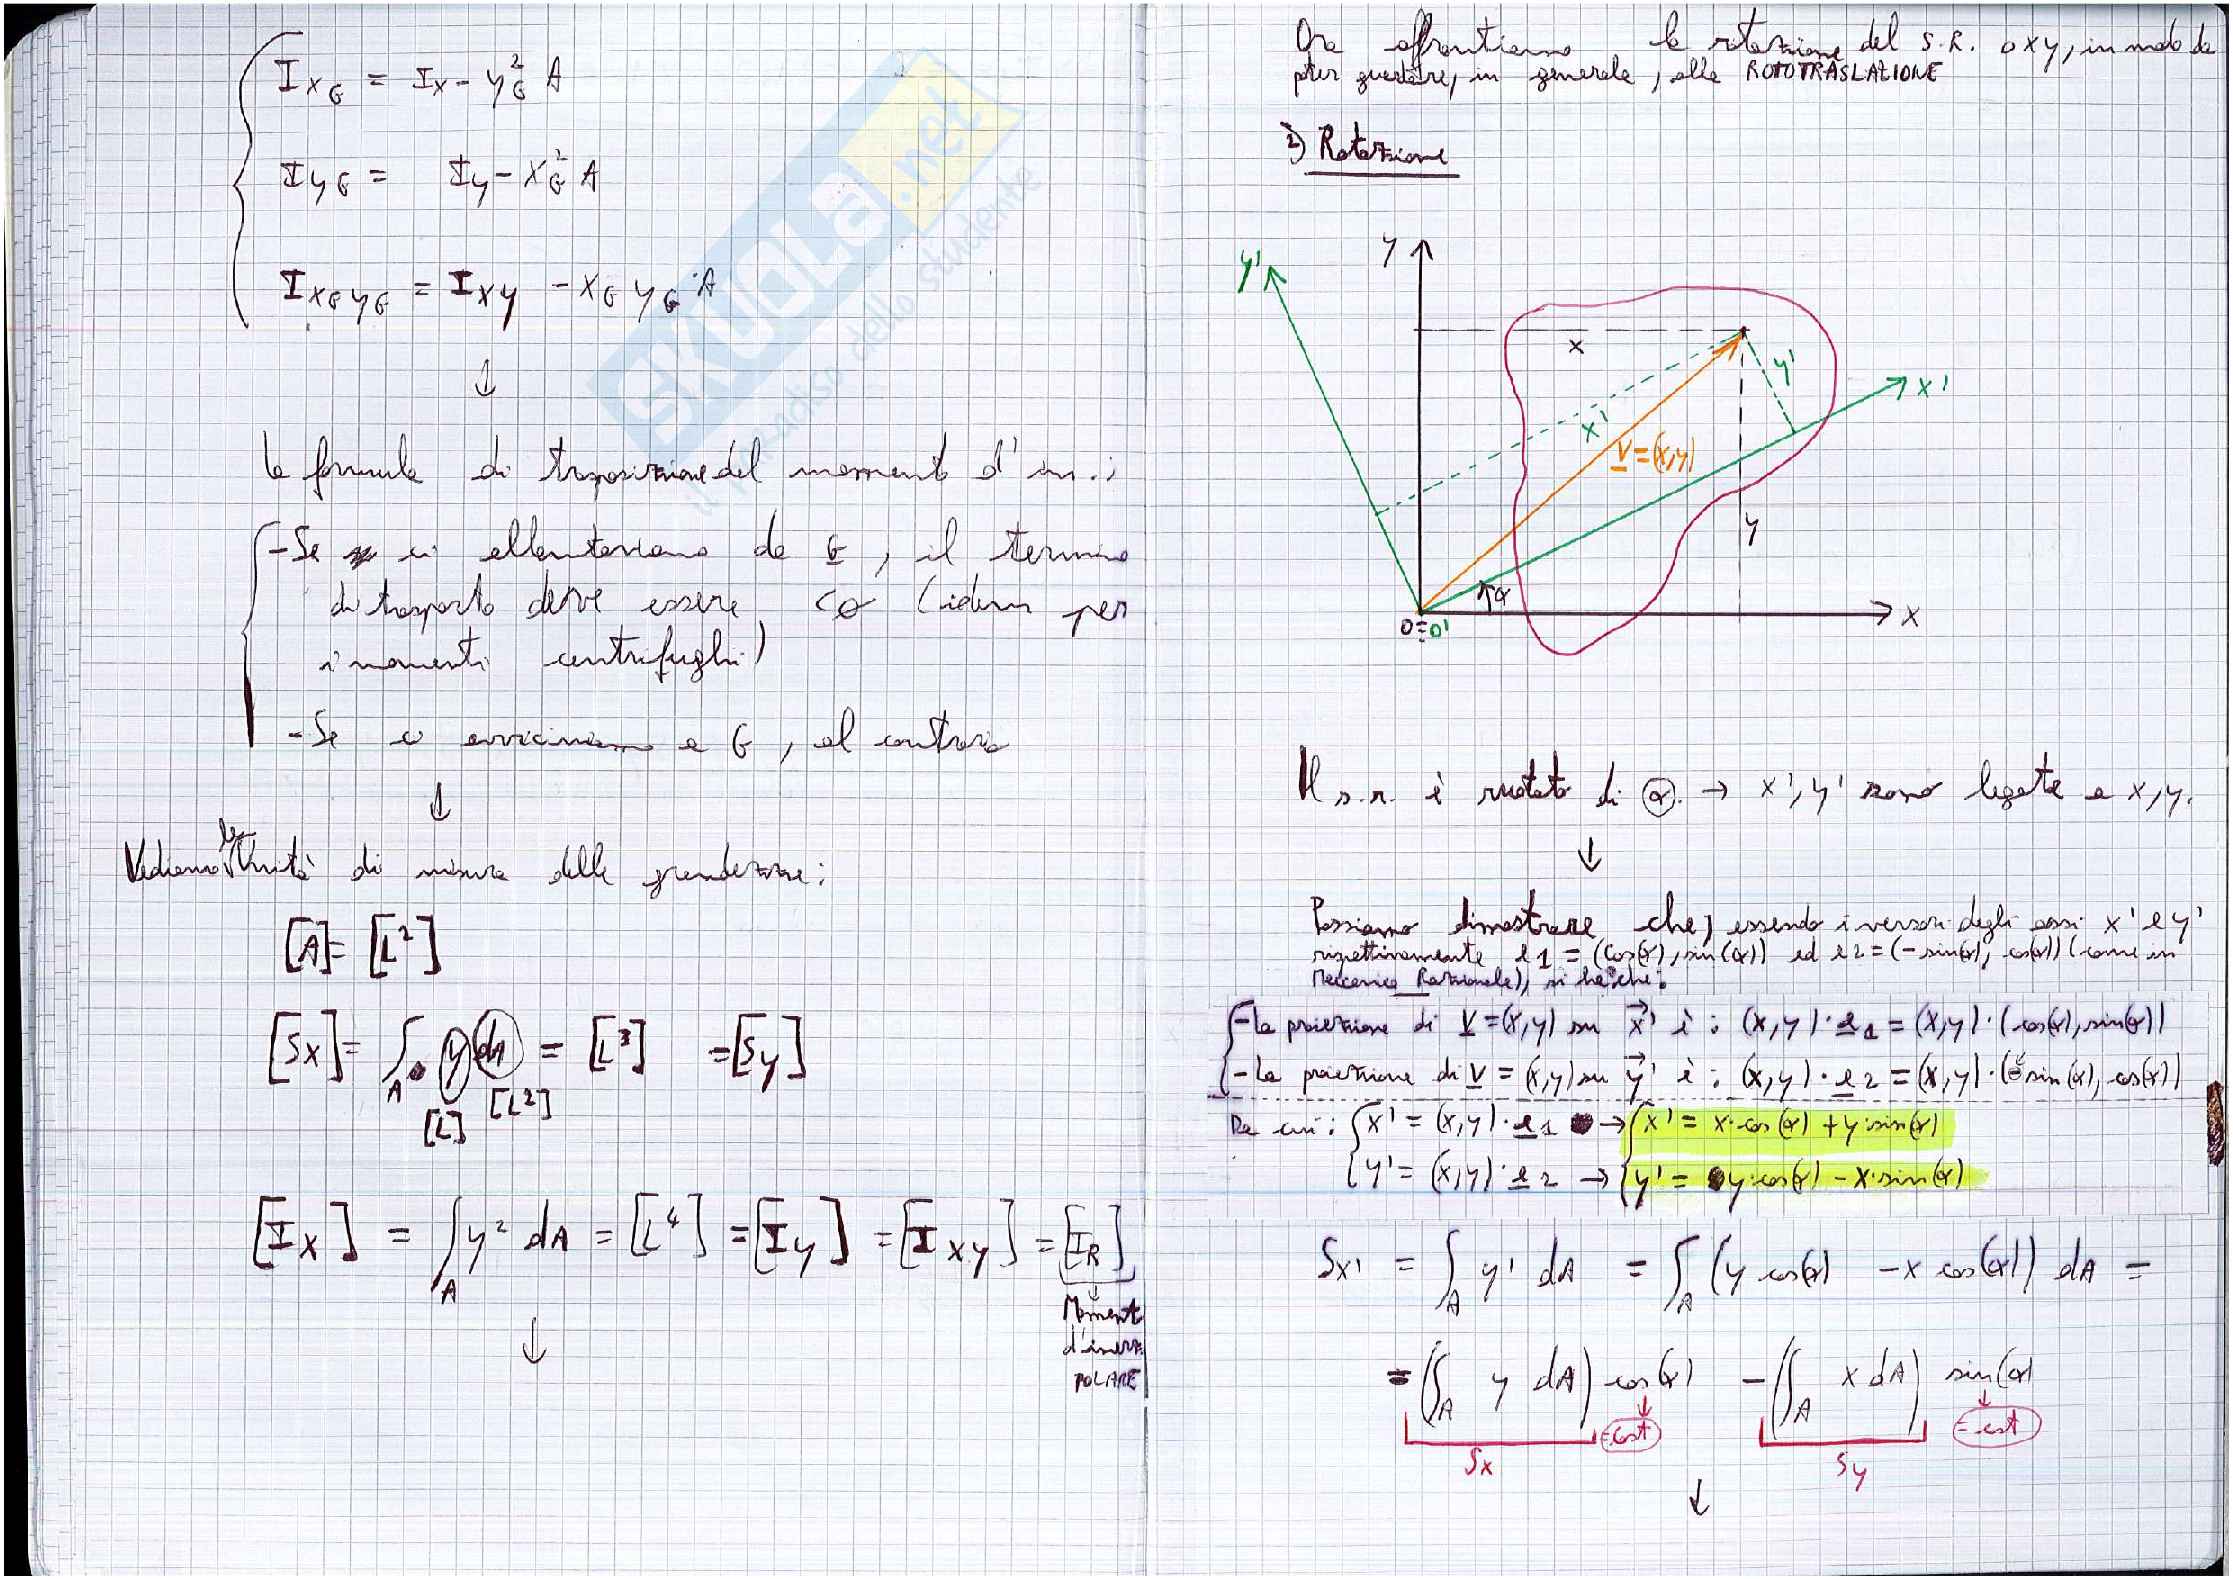 I_{xG} = I_x - y_G^2 A
I_{yG} = I_y - x_G^2 A
I_{xGyG} = I_{xy} - x_G y_G · A
↓
la formula di trasposizione del momento d'in.:
- Se ci allontaniamo da G, il termine
di trasporto deve essere (idem per
i momenti centrifughi)
- Se ci avviciniamo a G, al contrario
↓
Vediamo le Unità di misura delle grandezze:
[A] = [L^2]
[Sx] = ∫_A y dA = [L^3] = [Sy]
[L] [L^2]
[Ix] = ∫_A y^2 dA = [L^4] = [Iy] = [Ixy] = [I_R]
↓
Momento
d'inerz.
POLARE
↓
SKUOLA.net
dello studente
Ora affrontiamo la rotazione del S.R. oxy, in modo da
poter guardare, in generale, alla ROTOTRASLAZIONE
2) Rotazione
y'
y
x
y'
x'
x'
v=(x,y)
y
α
O≡O'
x
Il s.r. è ruotato di α → x', y' sono legate a x, y.
↓
Possiamo dimostrare che, essendo i versori degli assi x' e y'
rispettivamente e1 = (cos(α), sin(α)) ed e2 = (-sin(α), cos(α)) (come in
Meccanica Razionale), si ha che:
- la proiezione di v=(x,y) su x' è: (x,y)·e1 = (x,y)·(cos(α), sin(α))
- la proiezione di v=(x,y) su y' è: (x,y)·e2 = (x,y)·(-sin(α), cos(α))
Da cui: { x' = (x,y)·e1 → { x' = x·cos(α) + y·sin(α)
{ y' = (x,y)·e2 → { y' = y·cos(α) - x·sin(α)
Sx' = ∫_A y' dA = ∫_A (y cos(α) - x cos(α)) dA =
= (∫_A y dA) cos(α) - (∫_A x dA) sin(α)
Sx = cost Sy = cost
↓